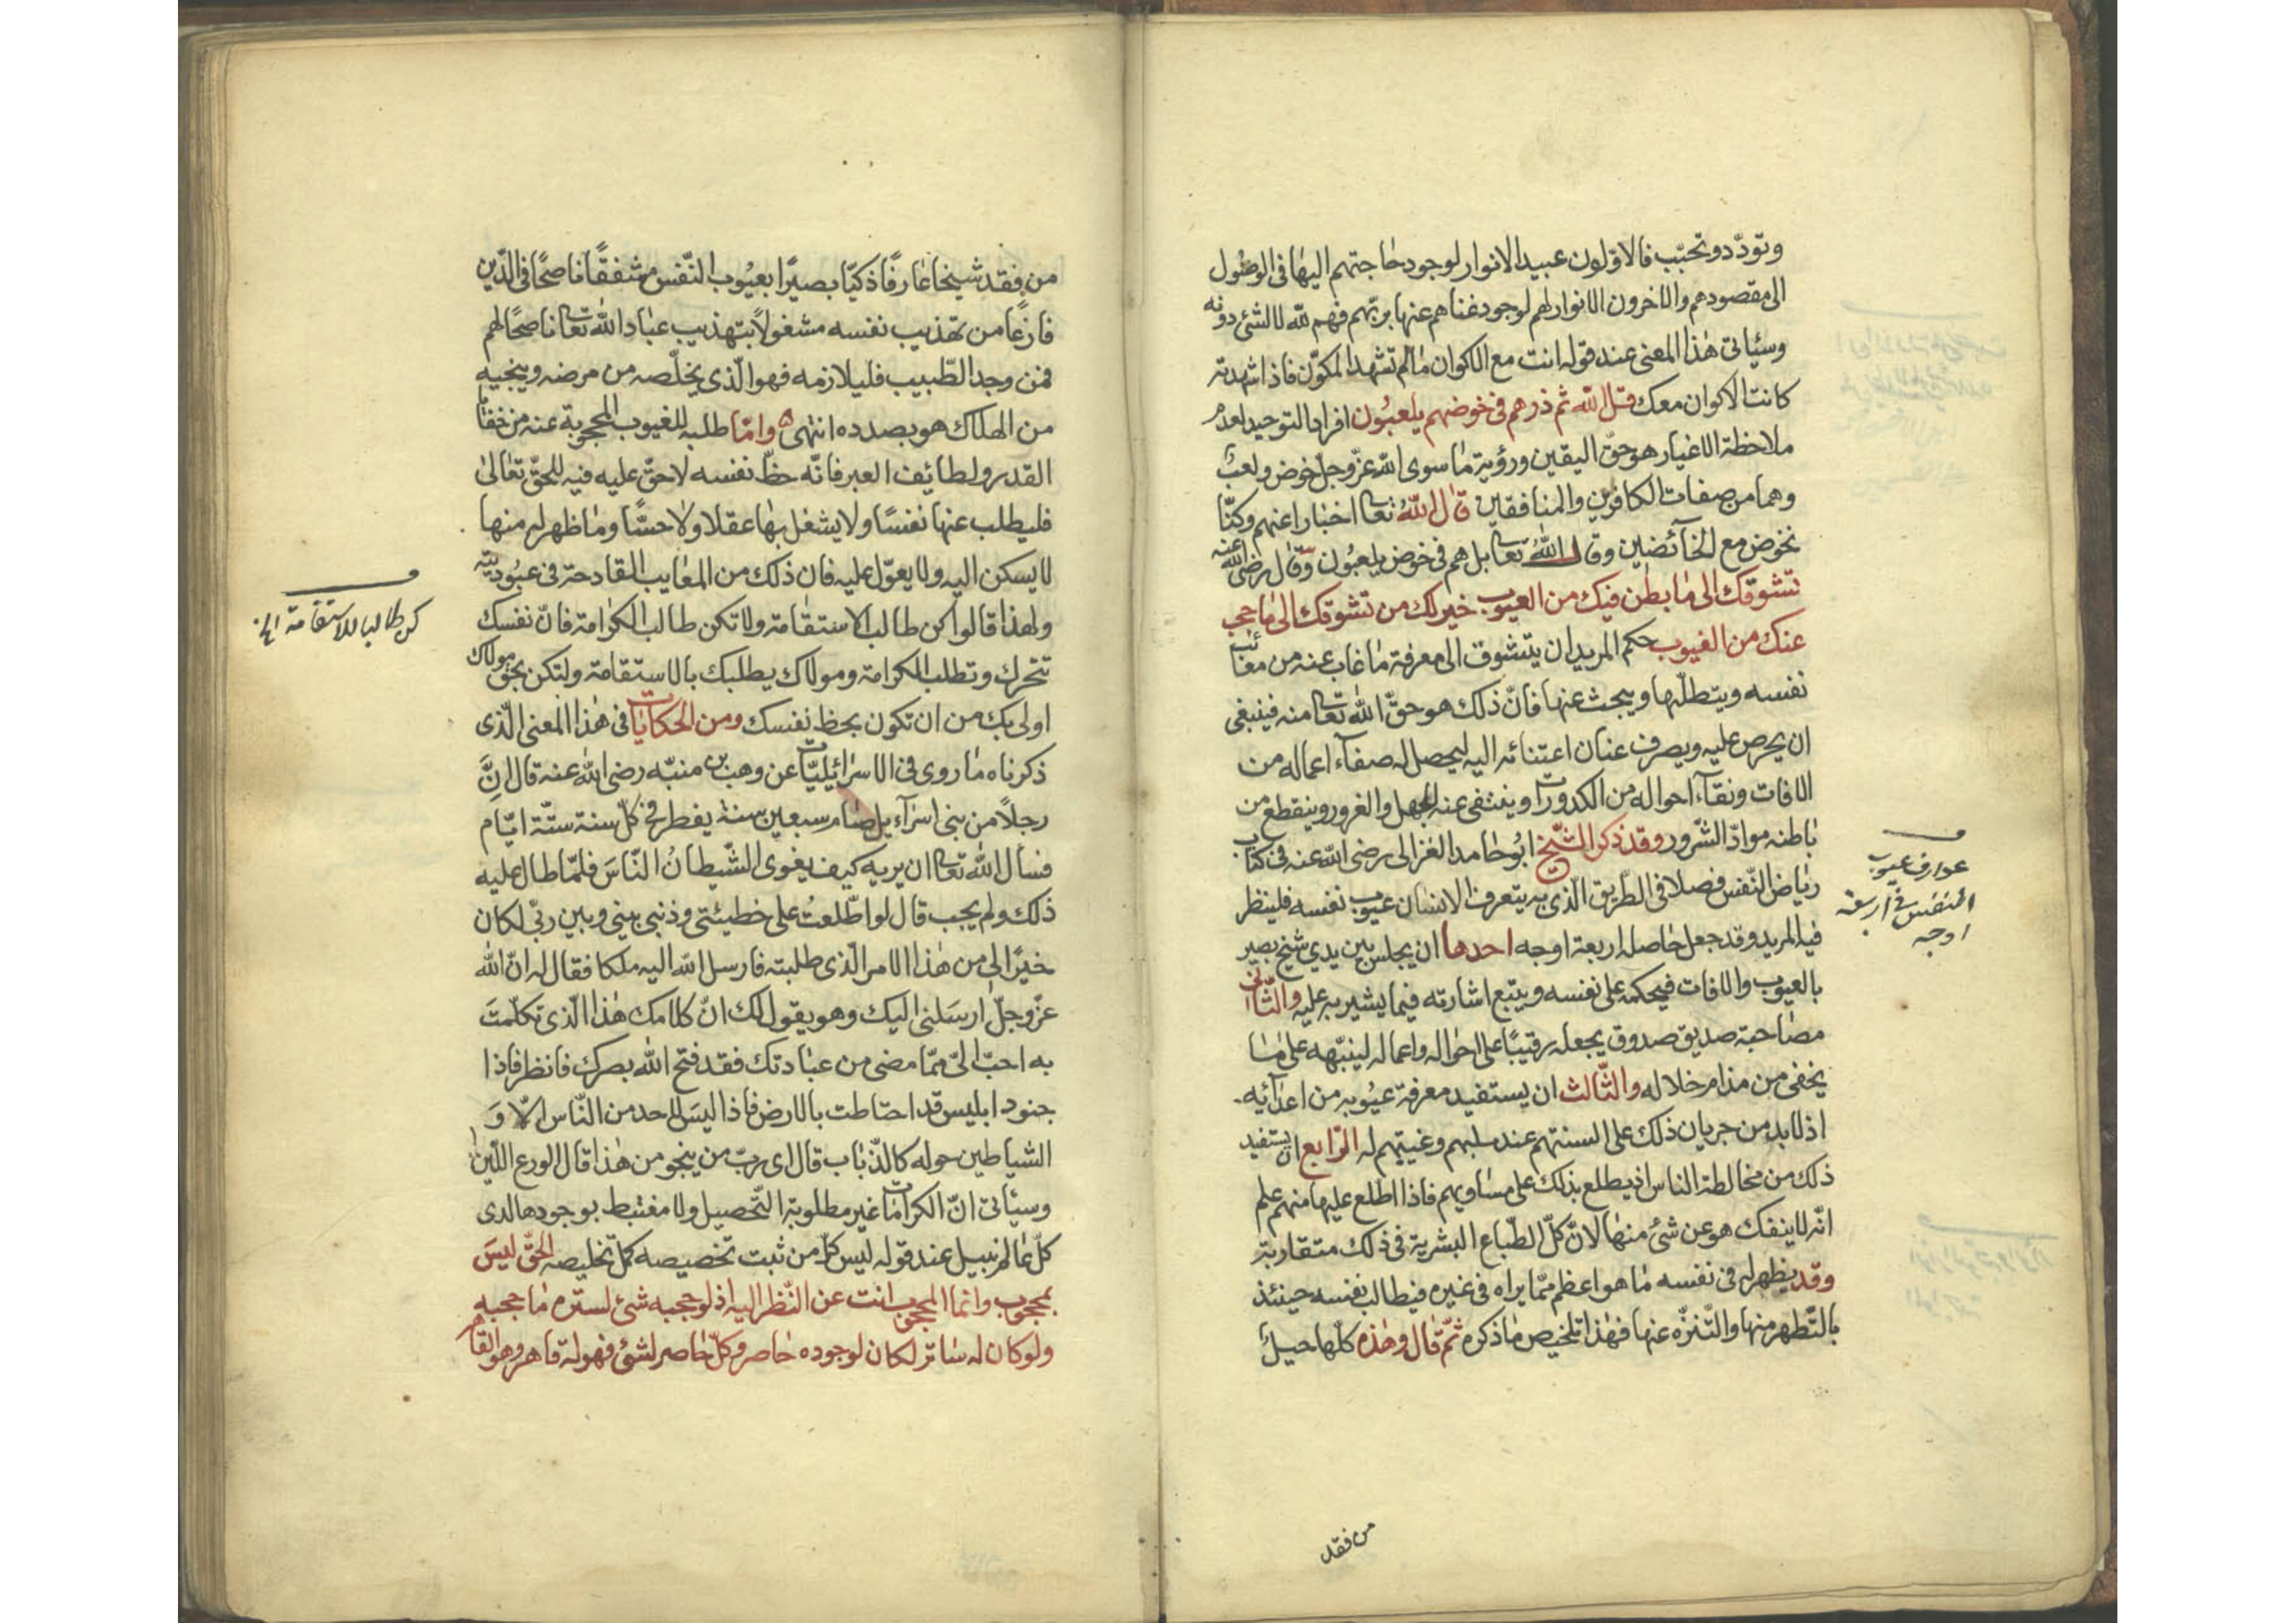 وتودّد وتحبّب فالاوّلون عبيد الانوار لوجود حاجتهم اليها فى الوصول
الى مقصودهم والاخرون الانوار لهم لوجود غناهم عنها بربّهم فهم لله لا لشئ دونه
وسيأتى هذا المعنى عند قوله انت مع الاكوان ما لم تشهد المكوّن فاذا شهدته
كانت الاكوان معك قل الله ثم ذرهم فى خوضهم يلعبون افراد التوحيد لعدم
ملاحظة الاغيار هو حق اليقين ورؤية ما سوى الله عزّ وجلّ خوض ولعب
وهما من صفات الكافرين والمنافقين قال الله تعا اخبارا عنهم وكنّا
نخوض مع الخآئضين وقال الله تعا بل هم فى خوض يلعبون وقال رضى الله عنه
تشوّفك الى ما بطن فيك من العيوب خير لك من تشوفك الى ما حجب
عنك من الغيوب حكم المريد ان يتشوق الى معرفة ما غاب عنه من معائب
نفسه ويتطلّبها ويبحث عنها فانّ ذلك هو حقّ الله تعا منه فينبغى
ان يحرص عليه ويصرف عنان اعتنائه اليه ليحصل له صفآء اعماله من
الافات ونقآء احواله من الكدورات وينتفى عنه الجهل والغرور وينقطع من
باطنه موادّ الشرور وقد ذكر الشّيخ ابو حامد الغزالى رضى الله عنه فى كتاب
رياض النّفس فصلا فى الطّريق الّذى به يتعرف الانسان عيوب نفسه فلينظر
فيه المريد وقد جعل حاصله اربعة اوجه احدها ان يجلس بين يدي شيخ بصير
بالعيوب والافات فيحكمه على نفسه ويتبع اشارته فيما يشير به عليه والثّانى
مصاحبة صديق صدوق يجعله رقيبًا على احواله واعماله لينبّهه على ما
يخفى من مذام خلاله والثّالث ان يستفيد معرفة عيوبه من اعدآئه
اذ لا بد من جريان ذلك على السنتهم عند سلبهم وغيبتهم له الرّابع ان يستفيد
ذلك من مخالطة الناس اذ يطلع بذلك على مساويهم فاذا اطلع عليها منهم علم
انّه لا ينفك هو عن شئ منها لانّ كلّ الطّباع البشرية فى ذلك متقاربة
وقد يظهر له فى نفسه ما هو اعظم ممّا يراه فى غيره فيطالب نفسه حينئذ
بالتّطهر منها والتّنزّه عنها فهذا تلخيص ما ذكره ثمّ قال وهذه كلّها حيل
عوارف عيوب
النفس فى اربعة
اوجه
من فقد
من فقد شيخا عارفًا ذكيّا بصيرًا بعيوب النّفس مشفقًا ناصحًا فى الدّين
فارغًا من تهذيب نفسه مشغولًا بتهذيب عباد الله تعا ناصحًا لهم
فمن وجد الطّبيب فليلازمه فهو الّذى يخلّصه من مرضه وينجيه
من الهلاك هو بصدده انتهى وامّا طلبه للغيوب المحجوبة عنه من خفايا
القدر ولطايف العبر فانّه حظّ نفسه لا حقّ عليه فيه للحقّ تعالى
فليطلب عنها نفسًا ولا يشغل بها عقلا ولا حسًّا وما ظهر له منها
لا يسكن اليه ولا يعوّل عليه فان ذلك من المعايب القادحة فى عبوديته
ولهذا قالوا كن طالب الاستقامة ولا تكن طالب الكرامة فانّ نفسك
تتحرك وتطلب الكرامة ومولاك يطلبك بالاستقامة ولتكن بحق مولاك
اولى بك من ان تكون بحظ نفسك ومن الحكايات فى هذا المعنى الّذى
ذكرناه ما روى فى الاسرائيليّات عن وهب بن منبّه رضى الله عنه قال انّ
رجلًا من بنى اسرآءيل صام سبعين سنة يفطر فى كلّ سنة ستّة ايّام
فسأل الله تعا ان يريه كيف يغوى الشّيطانُ النّاسَ فلمّا طال عليه
ذلك ولم يجب قال لو اطّلعتُ على خطيئتى وذنبى بينى وبين ربّى لكان
خيرًا لى من هذا الامر الّذى طلبته فارسل الله اليه ملكا فقال له انّ الله
عزّ وجلّ ارسلنى اليك وهو يقول لك انّ كلامك هذا الّذى تكلّمت
به احبّ الىّ ممّا مضى من عبادتك فقد فتح الله بصرك فانظر فاذا
جنود ابليس قد احاطت بالارض فاذا ليس لاحد من النّاس الّا وَ
الشياطين حوله كالذّباب قال اى ربّ من ينجو من هذا قال الورع اللّين
وسيأتى انّ الكرامات غير مطلوبة التّحصيل ولا مغتبط بوجودها لدى
كلّ عالم نبيل عند قوله ليس كلّ من ثبت تخصيصه كمل تخليصه الحقّ ليس
بمحجوب وانما المحجوب انت عن النّظر اليه اذ لو حجبه شئ لستره ما حجبه
ولو كان له ساتر لكان لوجوده حاصر وكلّ حاصر لشئ فهو له قاهر وهو القاهر
كن طالبا للاستقامة الخ